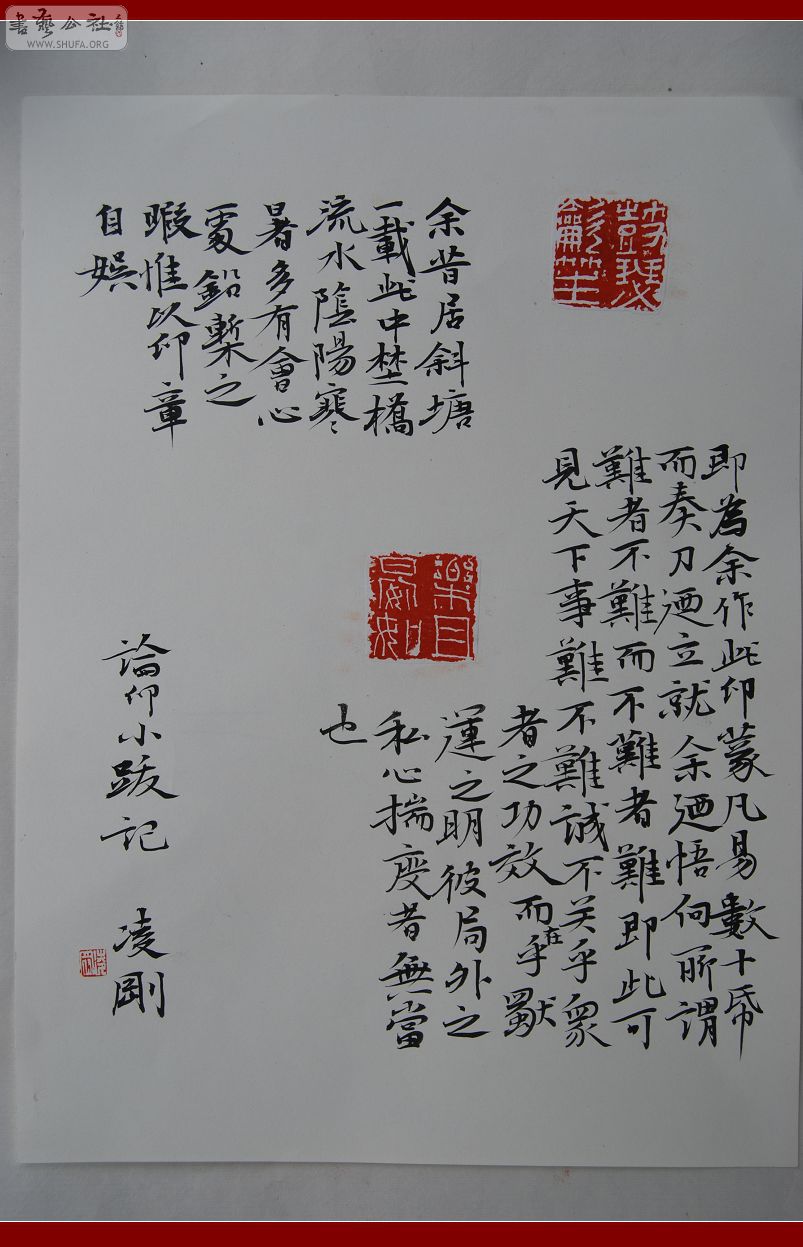 即為余作此印蒙凡易數十帋
而奏刀迺立就余迺悟向所謂
難者不難而不難者難即此可
見天下事難不難誠不关乎衆
者之功效而在乎獨
運之明彼局外之
私心揣度者無當
也
余昔居斜塘
一載此中埜橋
流水陰陽寒
暑多有會心
處鉛槧之
暇惟以印章
自娛
論印小跋記 凌剛
書藝公社
WWW.SHUFA.ORG